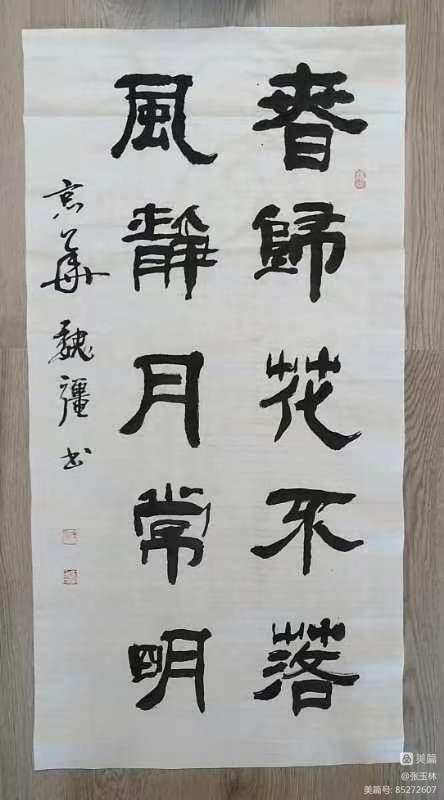 春歸花不落
風静月常明
京華魏疆书
美篇
@张玉林
美篇号: 85272607